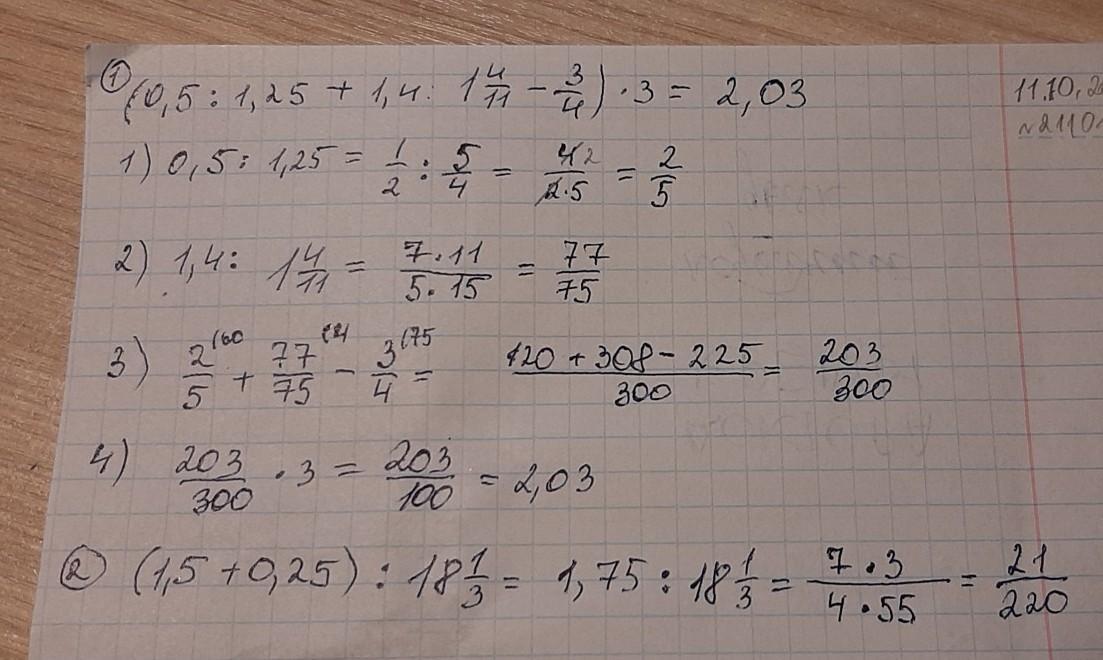 ① (0,5 : 1,25 + 1,4 : 1 4/11 - 3/4) · 3 = 2,03
11.10.
1) 0,5 : 1,25 = 1/2 : 5/4 = 42/2·5 = 2/5
2) 1,4 : 1 4/11 = 7·11/5·15 = 77/75
3) 2/5 (60 + 77/75 (4 - 3/4 (75 = 120 + 308 - 225/300 = 203/300
4) 203/300 · 3 = 203/100 = 2,03
② (1,5 + 0,25) : 18 1/3 = 1,75 : 18 1/3 = 7·3/4·55 = 21/220